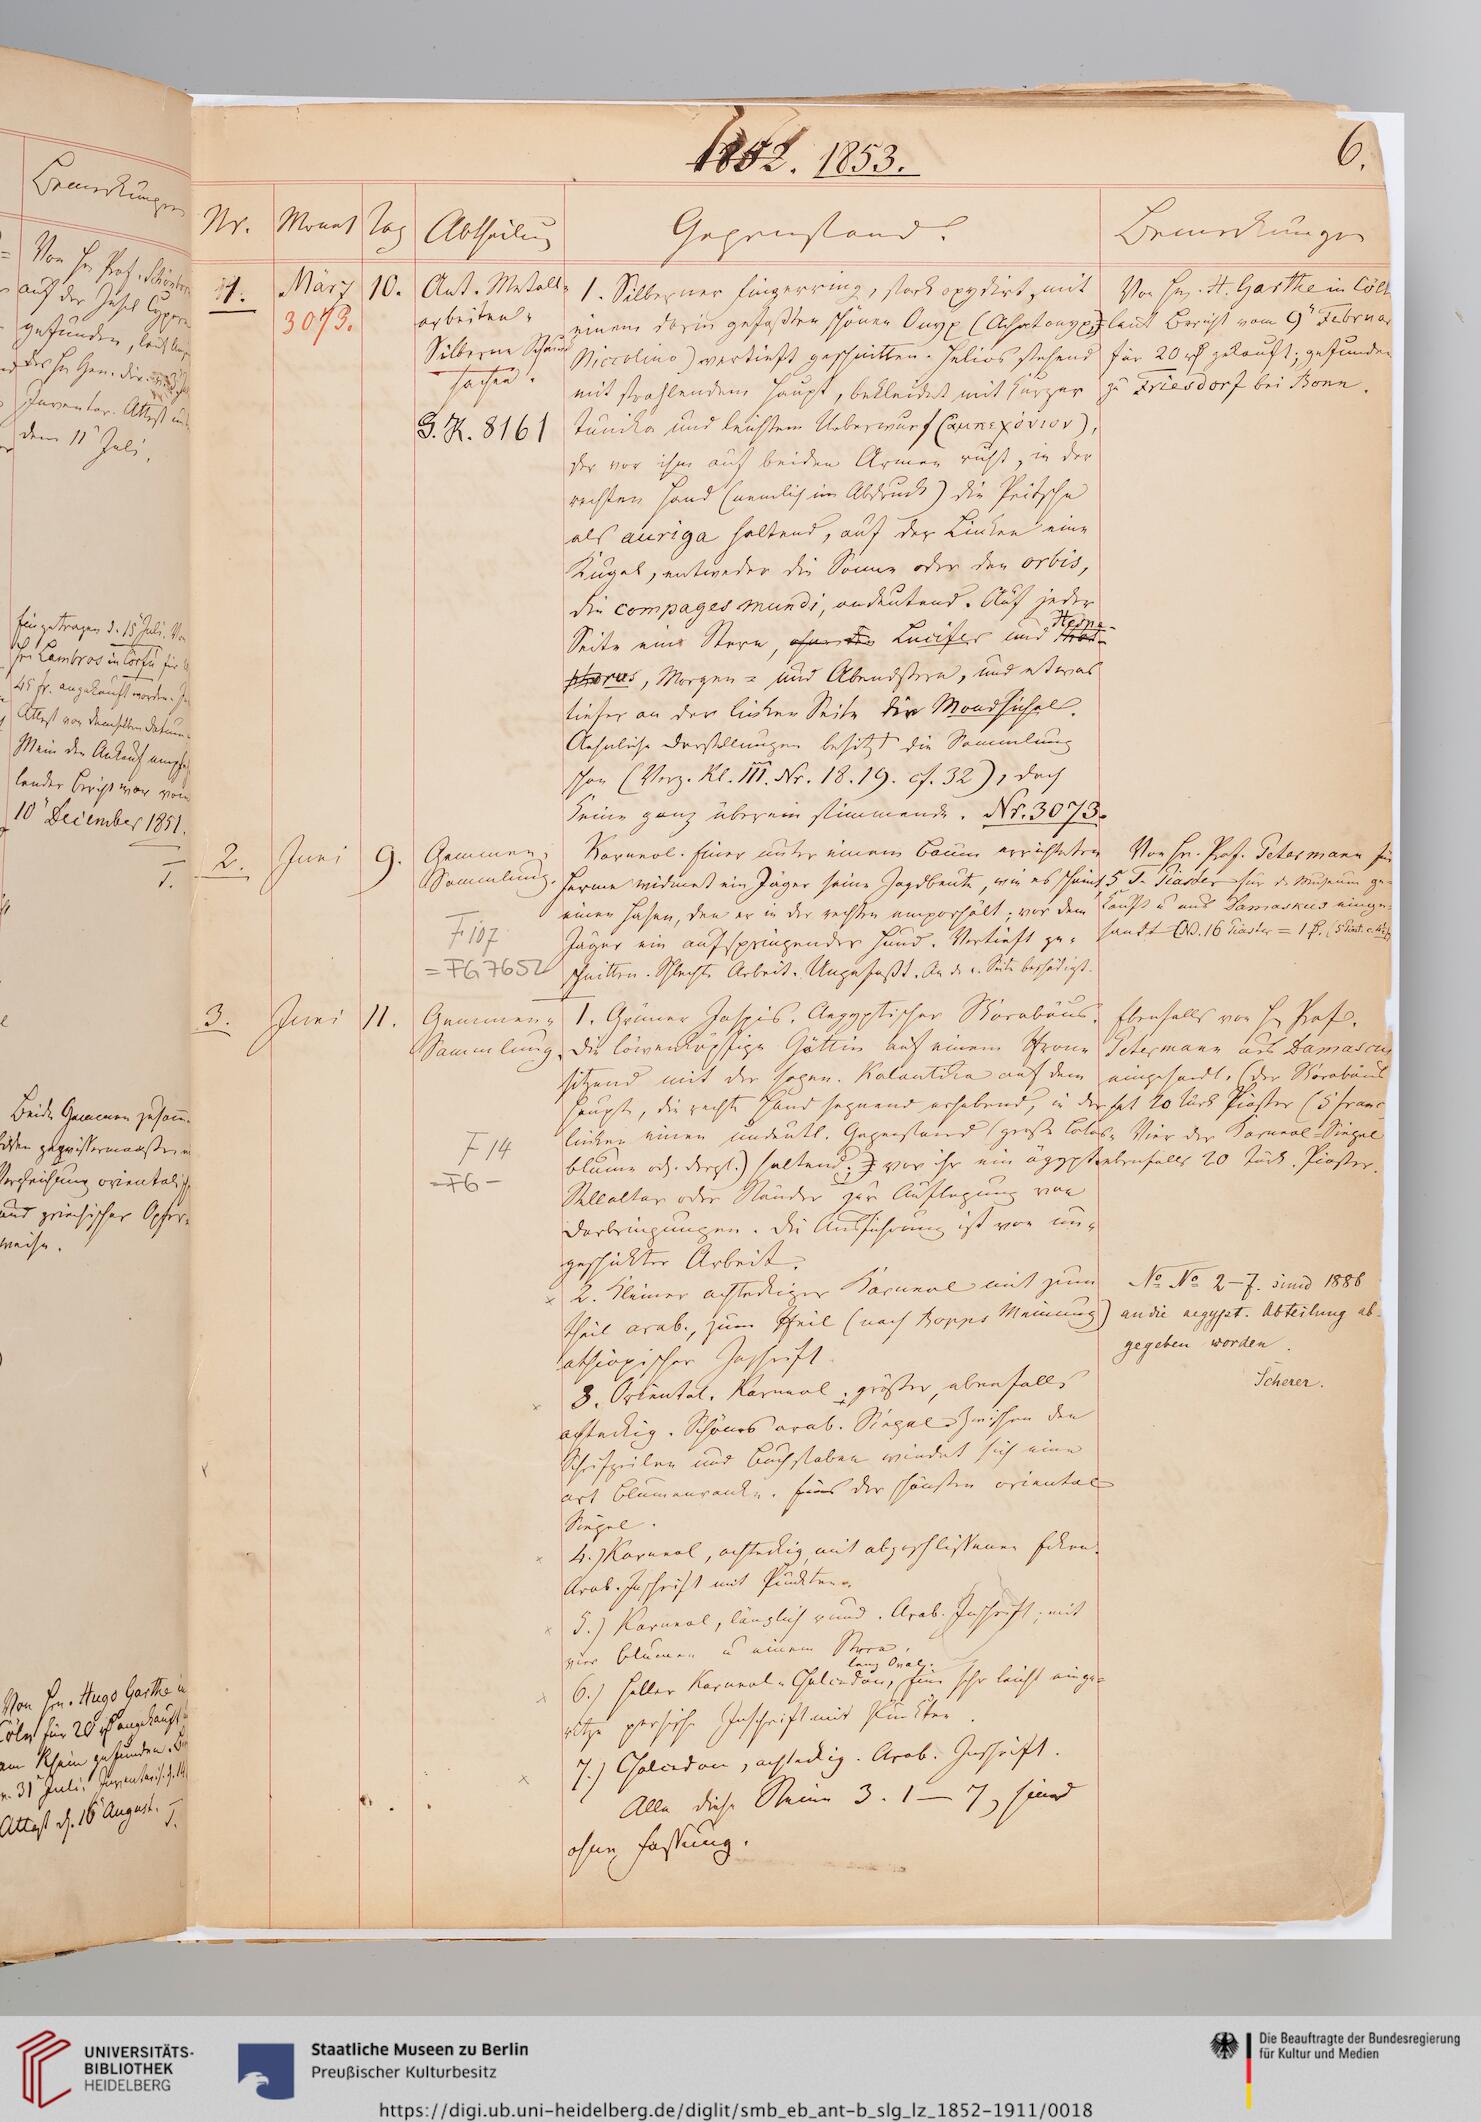 Bemerkungen
Von Hn Prof. Schönborn
auf der Insel Cypern
gefunden, laut
des Hn Gen. Dir.
Inventar. Attest aus
dem 11t Juli.
Eingetragen d. 15t Juli. Von
Hn Lambros in Corfu für
45 fr. angekauft worden.
Attest von demselben Datum.
Mein den Ankauf empfeh
lender Bericht war vom
10t December 1851.
T.
Beide Gemmen zusam
bilden gewissermaassen
Vergleichung orientalisch
und griechischer Opfer-
weise.
Von Hn. Hugo Garthe in
Cöln für 20 rl angekauft
am Rhein gefunden.
31t Juli. Inventaris. d. 14
Attest d. 16t August.
T.
1852. 1853.
6.
Nr. Monat Tag Abtheilung Gegenstand. Bemerkungen
1. März 10. Ant. Metall-
3073. arbeiten.
Silberne Schmuck
sachen.
G.K. 8161
1. Silberner Fingerring, stark oxydirt, mit
einem darin gefaßten schönen Onyx (Achatonyx,
Niccolino) vertieft geschnitten. Helios stehend
mit strahlendem Haupt, bekleidet mit kurzer
Tunika und leichtem Ueberwurf (ἀμπεχόνιον),
der vor ihm auf beiden Armen ruht, in der
rechten Hand (nemlich im Abdruck) die Peitsche
als auriga haltend, auf der Linken eine
Kugel, entweder die Sonne oder den orbis,
die compages mundi, andeutend. Auf jeder
Seite eine Stern, Lucifer und Hespe-
rus, Morgen- und Abendstern, und etwas
tiefer an der linken Seite die Mondsichel.
Aehnliche Darstellungen besitzt die Sammlung
schon (Verz. Kl. III. Nr. 18. 19. cf. 32), doch
keine ganz übereinstimmende. Nr. 3073.
Von Hn. H. Garthe in Cöln
laut Bericht vom 9t Februar
für 20 rl gekauft; gefunden
zu Friesdorf bei Bonn.
2. Juni 9. Gemmen-
Sammlung.
F107
=FG7652
Karneol. Einer unter einem Baum errichteten
Herme widmet ein Jäger seine Jagdbeute, wie es scheint,
einen Hasen, den er in der rechten emporhält; vor dem
Jäger ein aufspringender Hund. Vertieft ge-
schnitten. Schlechte Arbeit. Ungefaßt. An d. r. Seite beschädigt.
Von Hn. Prof. Petermann für
5 T. Piaster für d. Museum ge-
kauft u aus Damaskus einge-
sandt
3. Juni 11. Gemmen-
Sammlung.
F 14
=F6-
1. Grüner Jaspis. Aegyptischer Skarabäus.
Die löwenköpfige Göttin auf einem Throne
sitzend mit der sogen. Kalantika auf dem
Haupte, die rechte Hand segnend erhebend, in der
linken einen undeutl. Gegenstand (große Lotos-
blume od. dergl.) haltend; vor ihr ein ägypt.
Altar oder Ständer zur Auflegung von
Darbringungen. Die Ausführung ist von un-
geschickter Arbeit.
2. Kleiner achteckiger Karneol mit zum
Theil arab., zum Theil (nach Bopps Meinung)
äthiopischer Inschrift.
3. Oriental. Karneol, größer, ebenfalls
achteckig. Schönes arab. Siegel. Zwischen den
Schriftzeilen und Buchstaben windet sich eine
art Blumenranke. Eins der schönsten oriental
Siegel.
4.) Karneol, achteckig mit abgeschlissenen Ecken.
Arab. Inschrift mit Punkten.
5.) Karneol, länglich rund. Arab. Inschrift, mit
vier Blumen u einem Stern.
lang Oval.
6.) Heller Karneol-Chalcedon, Eine sehr leicht einge-
ritzte persische Inschrift mit Punkten.
7.) Chalcedon, achteckig. Arab. Inschrift.
Alle diese Steine 3. 1 — 7, sind
ohne Fassung.
Ebenfalls von Hn Prof.
Petermann aus Damascus
eingesandt. (Der Skarabäus
hat 20 türk Piaster (5 francs
Vier der Karneol-Siegel
ebenfalls 20 türk. Piaster.
No No 2-7. sind 1886
an die aegypt. Abteilung ab-
gegeben worden.
Scherer.
UNIVERSITÄTS-
BIBLIOTHEK
HEIDELBERG
Staatliche Museen zu Berlin
Preußischer Kulturbesitz
Die Beauftragte der Bundesregierung
für Kultur und Medien
https://digi.ub.uni-heidelberg.de/diglit/smb_eb_ant-b_slg_lz_1852-1911/0018